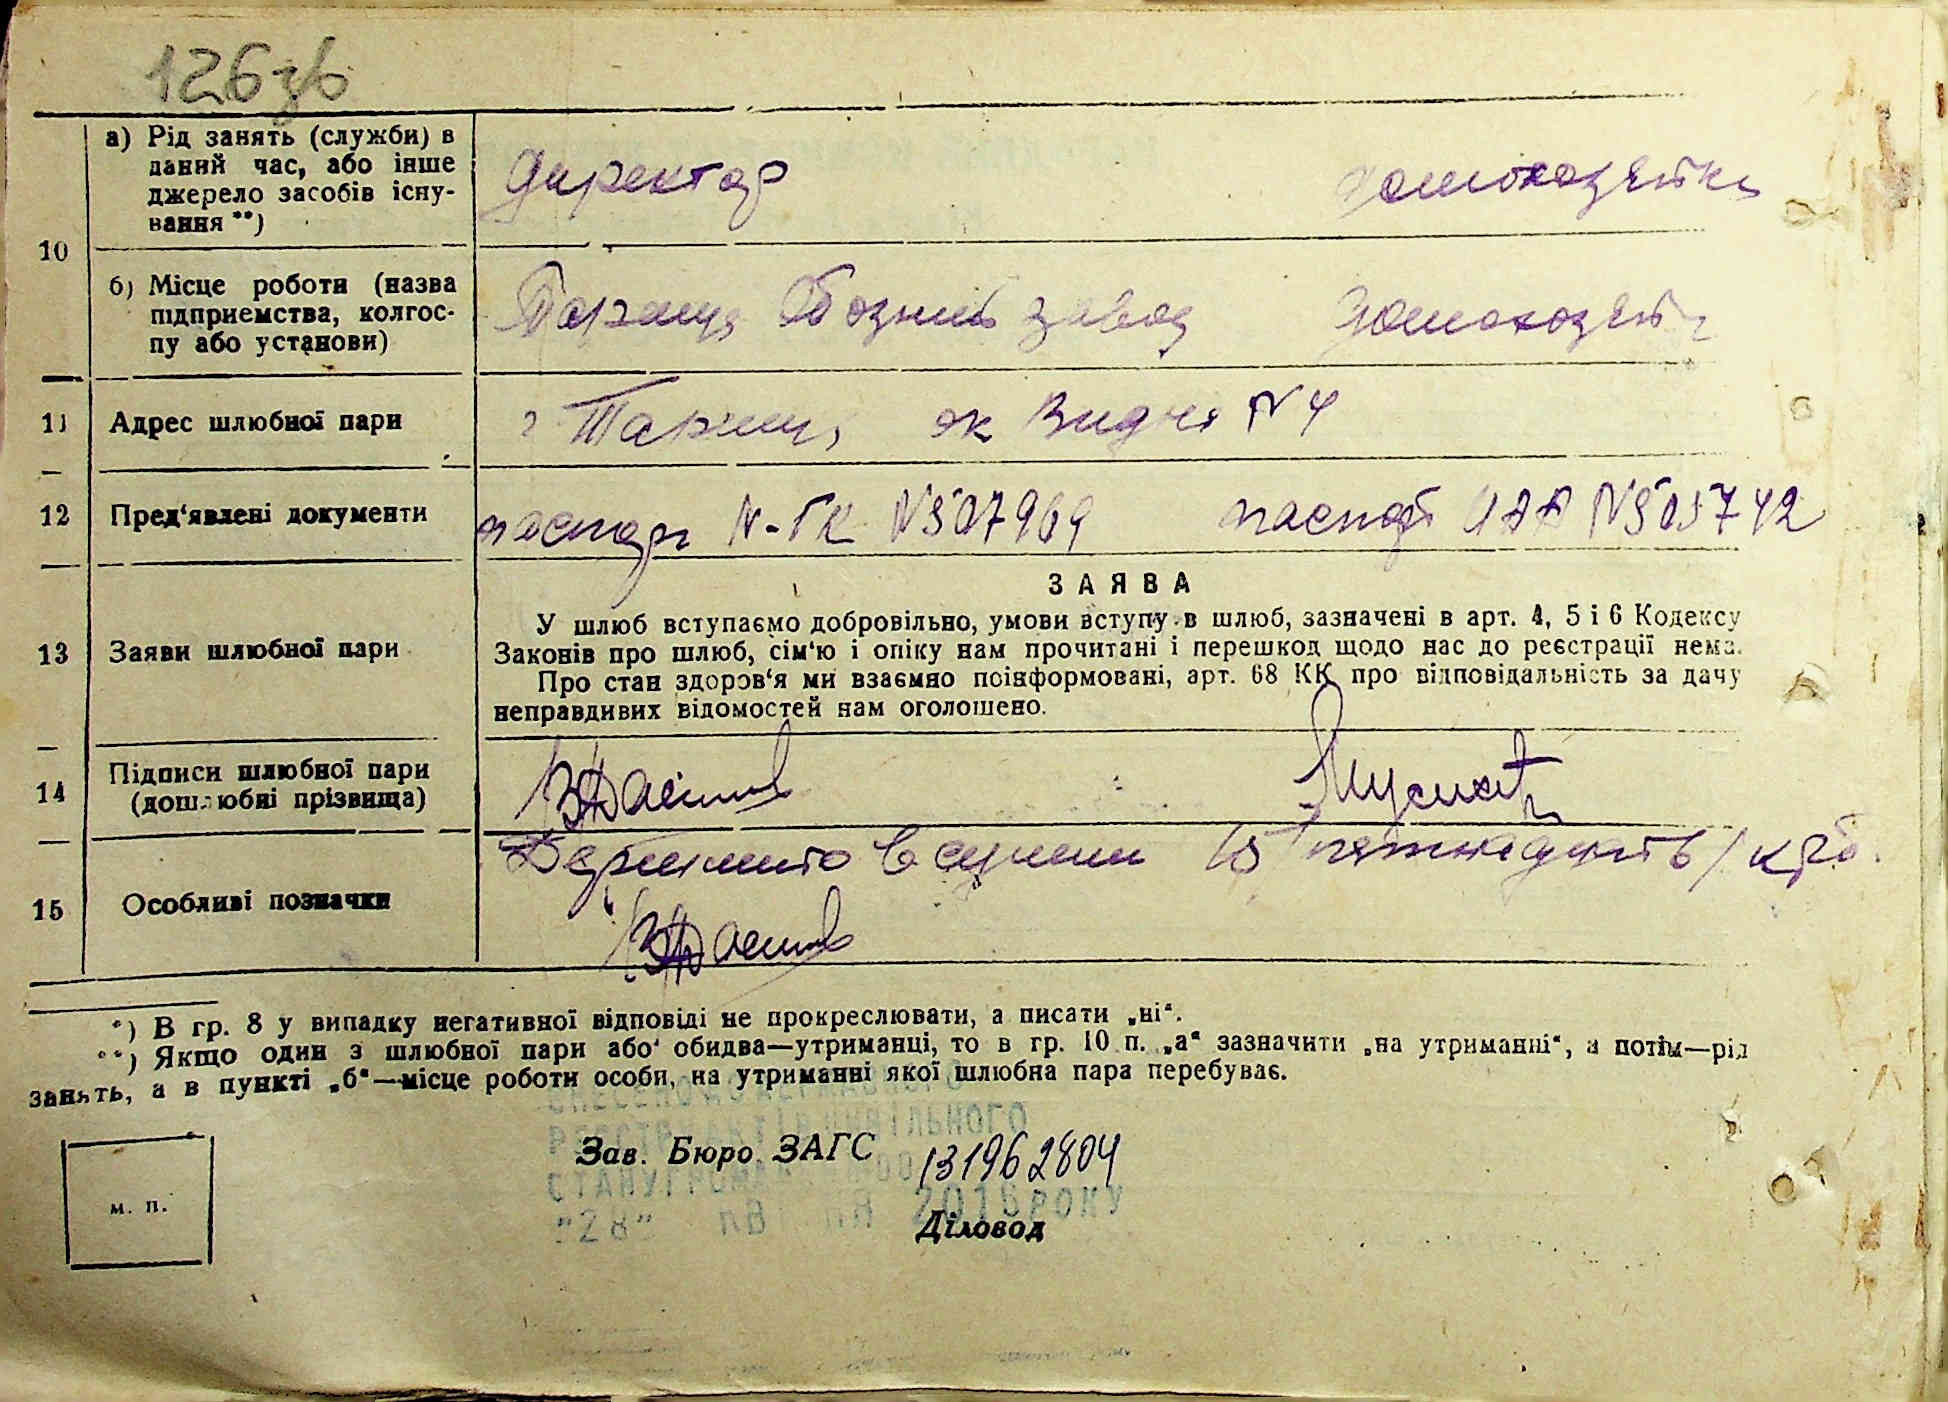 126 зв
а) Рід занять (служби) в
даний час, або інше
джерело засобів існу-
вання **)
директор домохозяйка
10
б) Місце роботи (назва
підприємства, колгос-
пу або установи)
Обозний завод
11 Адрес шлюбної пари
г. N 4
12 Пред'явлені документи
паспорт N 507969 паспорт N 505742
13 Заяви шлюбної пари
ЗАЯВА
У шлюб вступаємо добровільно, умови вступу в шлюб, зазначені в арт. 4, 5 і 6 Кодексу
Законів про шлюб, сім'ю і опіку нам прочитані і перешкод щодо нас до реєстрації нема.
Про стан здоров'я ми взаємно поінформовані, арт. 68 КК про відповідальність за дачу
неправдивих відомостей нам оголошено.
14 Підписи шлюбної пари
(дошлюбні прізвища)
15 Особливі позначки
15 /пятнадцать/
*) В гр. 8 у випадку негативної відповіді не прокреслювати, а писати „ні“.
**) Якщо один з шлюбної пари або обидва—утриманці, то в гр. 10 п. „а“ зазначити „на утриманні“, а потім—рід
занять, а в пункті „б“—місце роботи особи, на утриманні якої шлюбна пара перебуває.
ВНЕСЕНО ДО ДЕРЖАВНОГО
РЕЄСТРУ АКТІВ ЦИВІЛЬНОГО
Зав. Бюро ЗАГС 131962804
СТАНУ ГРОМАДЯН
м. п.
"28" 2016 РОКУ
Діловод